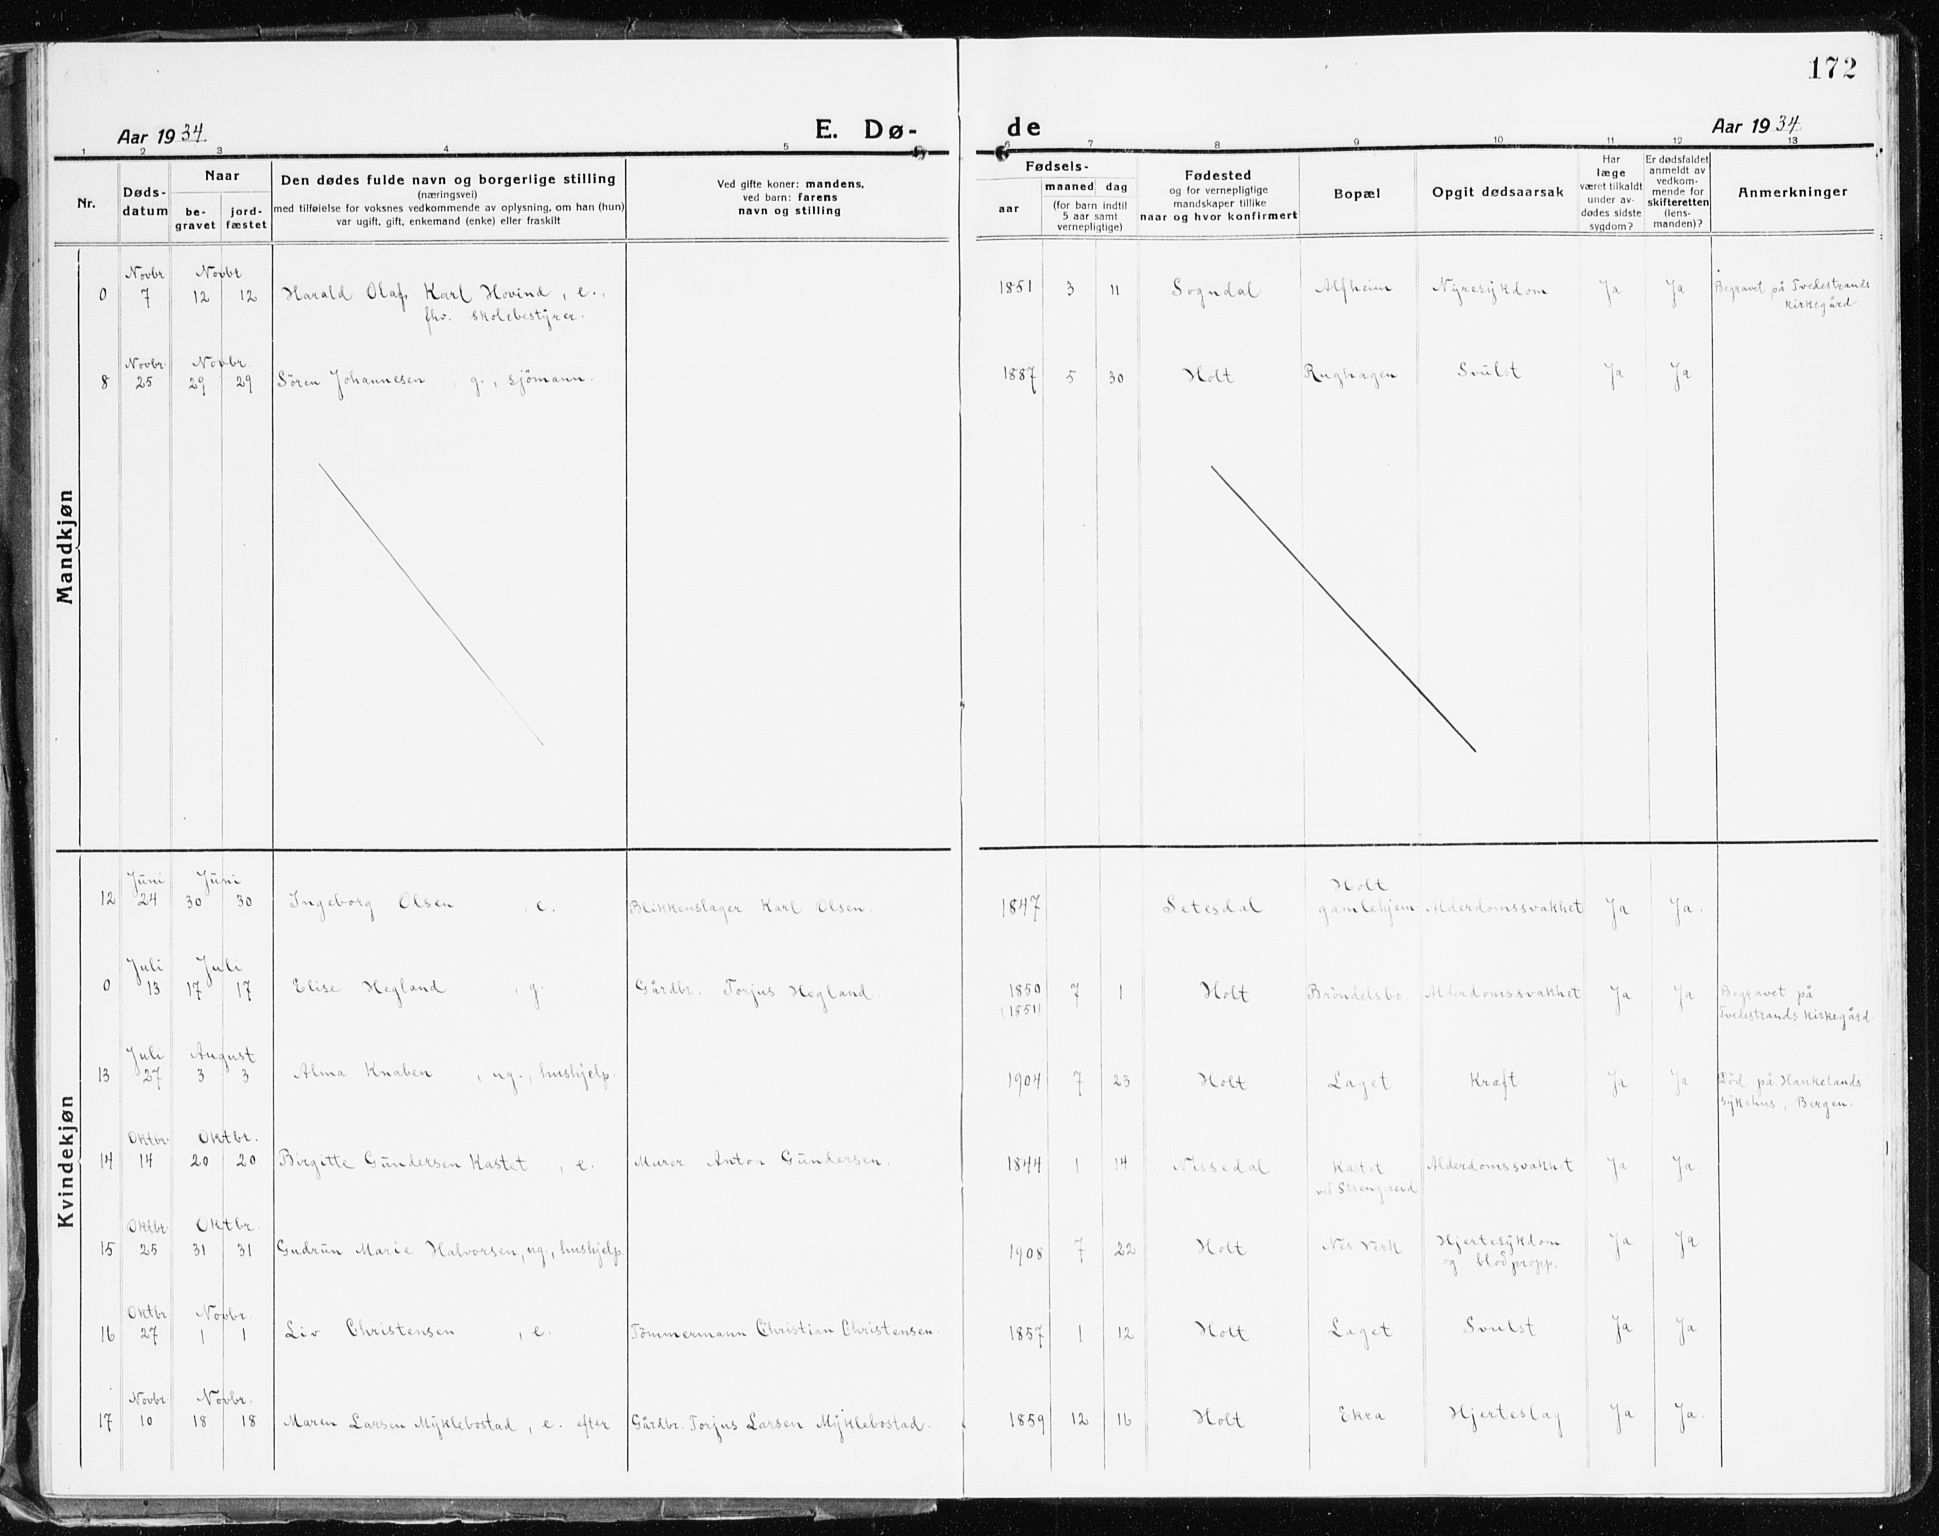 172
Aar 1934. E. Dø- de Aar 1934.
1 2 3 4 5 6 7 8 9 10 11 12 13
Nr.
Døds-
datum
Naar
be-
gravet
jord-
fæstet
Den dødes fulde navn og borgerlige stilling
(næringsvei)
med tilføielse for voksnes vedkommende av oplysning, om han (hun)
var ugift, gift, enkemand (enke) eller fraskilt
Ved gifte koner: mandens,
ved barn: farens
navn og stilling
Fødsels-
aar
maaned dag
(for barn indtil
5 aar samt
vernepligtige)
Fødested
og for vernepligtige
mandskaper tillike
naar og hvor konfirmert
Bopæl
Opgit dødsaarsak
Har
læge
været tilkaldt
under av-
dødes sidste
sygdom?
Er dødsfaldet
anmeldt av
vedkom-
mende for
skifteretten
(lens-
manden)?
Anmerkninger
Mandkjøn
Novbr. Novbr.
0 7 12 12 Harald Olaf Karl Hovind, e., 1851 3 11 Sogndal Alfheim Nyresykdom Ja Ja Begravet på Tvedestrands
fhv. skolebestyrer. kirkegård.
Novbr. Novbr.
8 25 29 29 Sören Johannesen, g., sjömann. 1887 5 30 Holt Rughagen Svulst Ja Ja
Kvindekjøn
Juni Juni Holt
12 24 30 30 Ingeborg Olsen, e. Blikkenslager Karl Olsen. 1847 Setesdal gamlehjem Alderdomssvakhet Ja Ja.
Juli Juli
0 13 17 17 Elise Hegland, g. Gårdbr. Torjus Hegland. 1850 7 1 Holt Bröndelsbo Alderdomssvakhet Ja Ja Begravet på
(1851) Tvedestrands kirkegård.
Juli August
13 27 3 3 Alma Knaben, ug., hushjelp. 1904 7 23 Holt Laget Kræft Ja Ja Död på Haukelands
sykehus, Bergen.
Oktbr. Oktbr.
14 14 20 20 Birgitte Gundersen Kastet, e. Murer Anton Gundersen. 1844 1 14 Nissedal Kastet Alderdomssvakhet Ja Ja.
ved Strengereid
Oktbr. Oktbr.
15 25 31 31 Gudrun Marie Halvorsen, ug., hushjelp. 1908 7 22 Holt Nes Verk Hjertesykdom Ja Ja
og blodpropp.
Oktbr. Novbr.
16 27 1 1 Liv Christensen, e. Tömmermann Christian Christensen. 1857 1 12 Holt Laget Svulst Ja Ja
Novbr. Novbr.
17 10 18 18 Maren Larsen Myklebostad, e. efter Gårdbr. Torjus Larsen Myklebostad. 1859 12 16 Holt Ekra Hjerteslag Ja Ja.